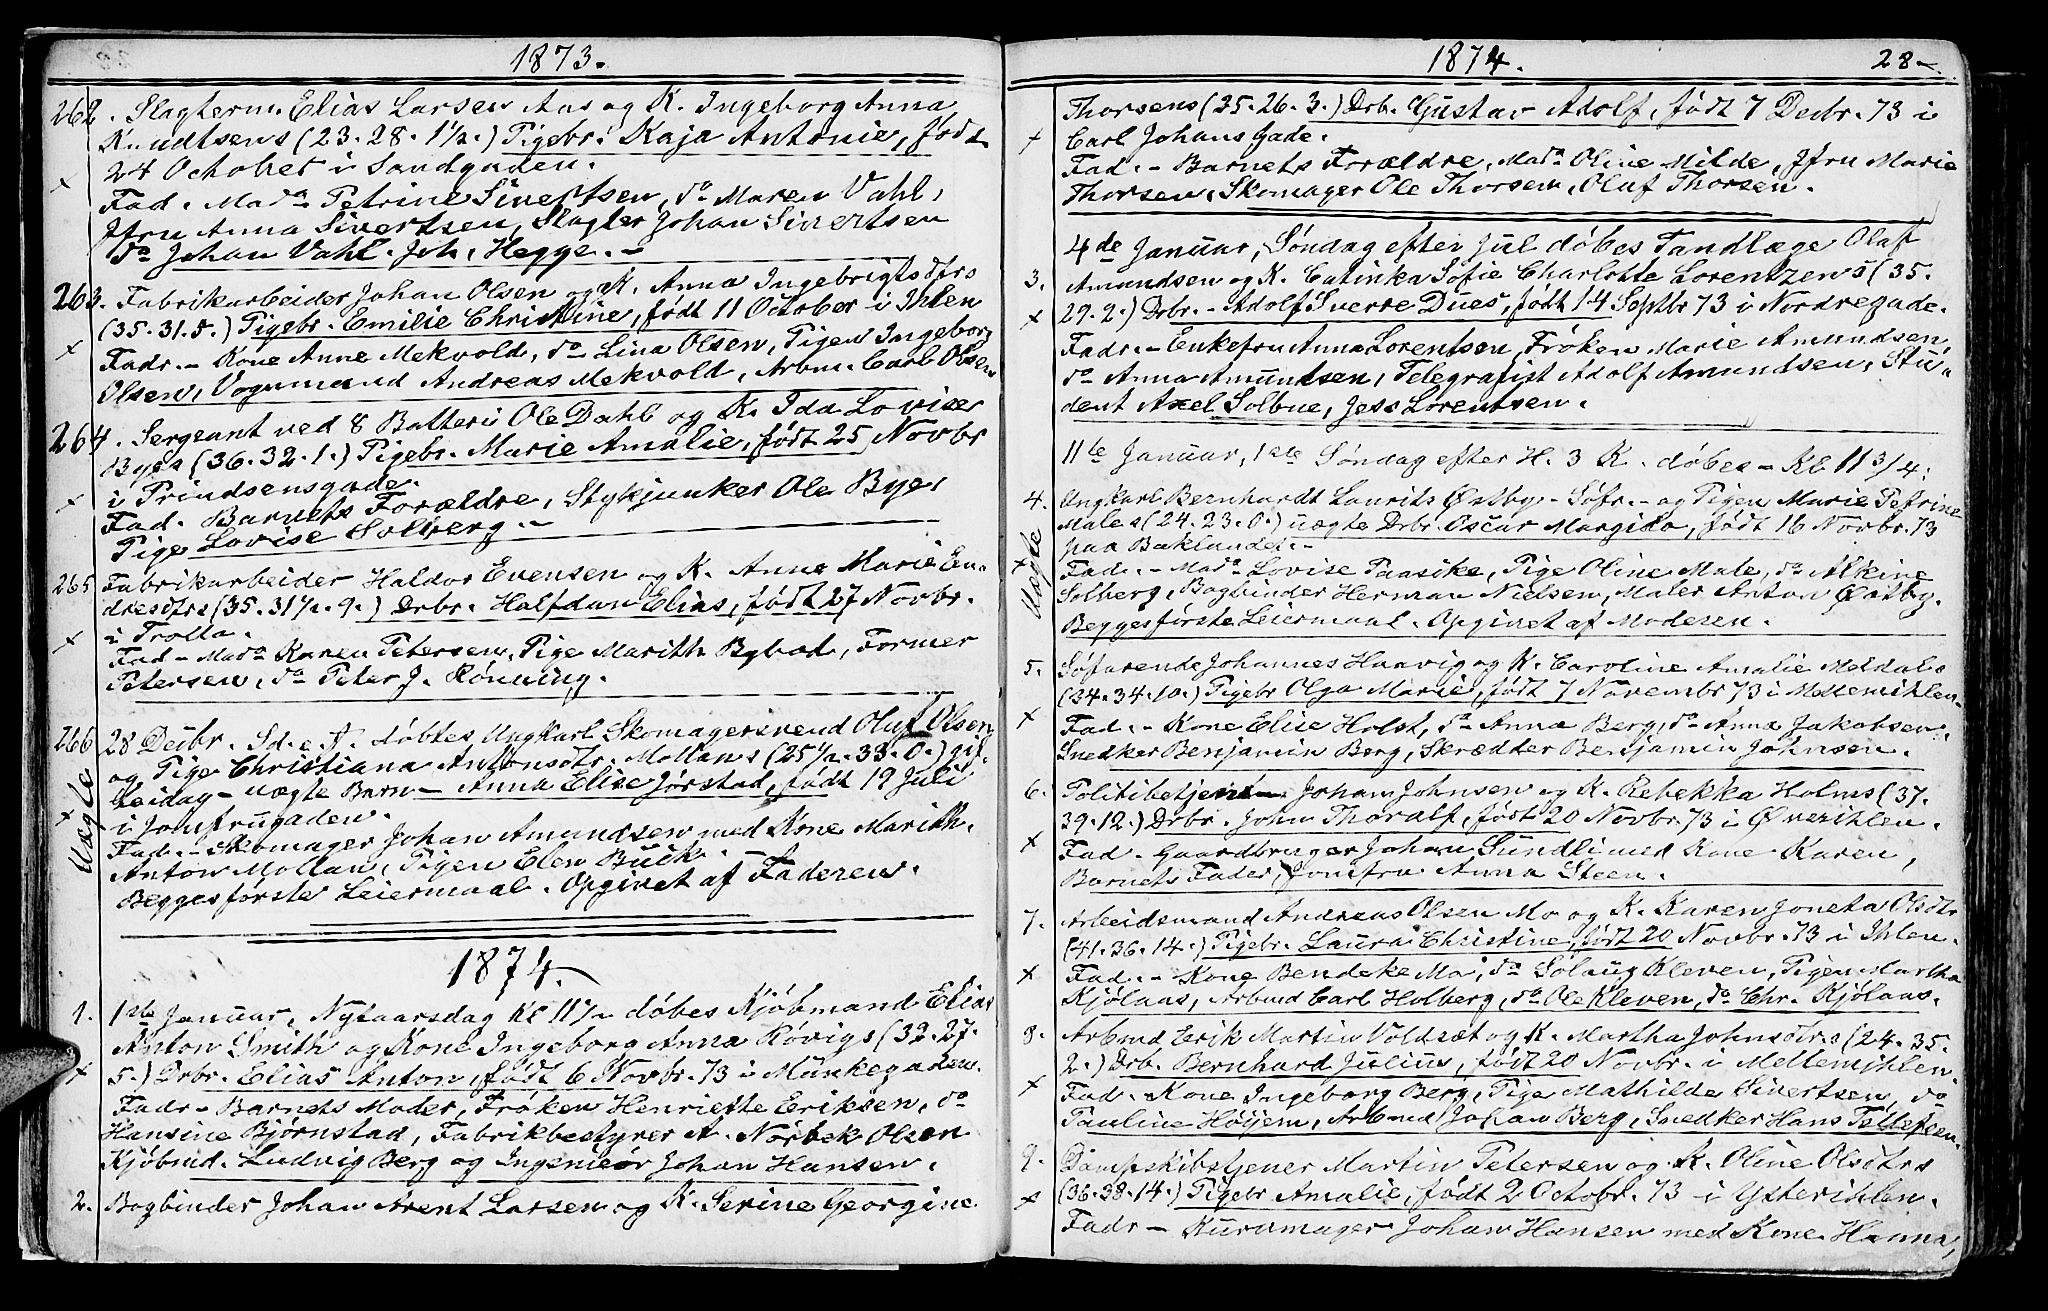 1873.
262. Slagterm. Elias Larsen Aas og K. Ingeborg Anna
Knudtsens (23. 28. 1½.) Pigebr. Kaja Antonie, født
24 October i Sandgaden.
x
Fad. Mada Petrine Sivertsen, do Maren Vahl,
Jfru Anna Sivertsen, Slagter Johan Sivertsen
do Johan Vahl. Joh. Hegge. –
263. Fabrikarbeider Johan Olsen og K. Anna Ingebrigtsdtrs
(35. 31. 5.) Pigebr. Emilie Christine, født 11 October i Ihlen
x
Fadr. – Kone Anne Mekvold, do Lina Olsen, Pigen Ingeborg
Olsen, Vognmand Andreas Mekvold, Arbm. Carl Olsen
264. Sergeant ved 8 Batteri Ole Dahl og K. Ida Lovise
Byes (36. 32. 1.) Pigebr. Marie Amalie, født 25 Novbr
i Prindsensgade.
x
Fad. Barnets Forældre, Stykjunker Ole Bye,
Pige Lovise Solberg. –
265 Fabrikarbeider Haldor Evensen og K. Anne Marie En-
dresdtrs (35. 31½. 9.) Drbr. Halfdan Elias, født 27 Novbr.
i Trolla.
x
Fad – Mada Karen Petersen, Pige Marith Bybod, Former
Petersen, do Peter J. Rønning.
266 28 Decbr. Sd. e. J. døbtes Ungkarl Skomagersvend Oluf Olsen
og Pige Christiana Antonsdtr. Mollans (25½. 33. 0.)
– uægte Barn – Anna Elise Jørstad, født 19 Juli
x Uægte
i Jomfrugaden.
Fad. – Skomager Johan Amundsen med Kone Marith.
Anton Mollan, Pigen Elen Buck.
Begges første Leiermaal. Opgivet af Faderen.
1874.
1. 1ste Januar, Nytaarsdag Kl 11½ døbes Kjøbmand Elias
Anton Smith og Kone Ingeborg Anna Røvigs (32. 27.
x
5.) Drbr. Elias Anton, født 6 Novbr. 73 i Munkegaden.
Fadr – Barnets Moder, Frøken Henriette Eriksen, do
Hansine Bjørnstad, Fabrikbestyrer A. Norbek Olsen
Kjøbmd. Ludvig Berg og Ingeniør Johan Hansen.
2. Bogbinder Johan Arent Larsen og K. Serine Georgine
1874.
28 –
Thorsens (25. 26. 3.) Drb. Gustav Adolf, født 7 Decbr. 73 i
x
Carl Johans Gade.
Fad. – Barnets Forældre, Mada Oline Milde, Jfru Marie
Thorsen, Skomager Ole Thorsen, Oluf Thorsen.
4de Januar, Søndag efter Jul døbes Tandlæge Olaf
3. Amundsen og K. Catinka Sofie Charlotte Lorentzens (35.
x
29. 2.) Drbr. – Adolf Sverre Dues, født 14 Septbr 73 i Nordregade.
Fadr. – Enkefru Anna Lorentsen, Frøken Marie Amundsen,
do Anna Amundsen, Telegrafist Adolf Amundsen, Stu-
dent Axel Solbue, Jess Lorentsen.
11te Januar, 1ste Søndag efter H. 3 K. døbes – Kl 11 3/4:
4. Ungkarl Bernhardt Laurits Østby – Søfr. – og Pigen Marie Petrine
Males (24. 23. 0.) uægte Drbr. Oscar Margido, født 16 Novbr. 73
paa Baklandet. –
x Uægte
Fad. – Mada Lovise Paaske, Pige Oline Male, do Alkine
Solberg, Bogbinder Herman Nielsen, Maler Anton Østby.
Begges første Leiermaal. Opgivet af Moderen.
5. Søfarende Johannes Haavig og K. Caroline Amalie Meldals
(34. 34. 10.) Pigebr Olga Marie, født 7 Novembr 73 i Mellemihlen
x
Fad. – Kone Elise Holst, do Anna Berg, do Anna Jakobsen,
Snedker Benjamin Berg, Skrædder Benjamin Johnsen.
6. Politibetjent Johan Johnsen og K. Rebekka Holms (37.
39. 12.) Drbr. John Thoralf, født 20 Novbr. 73 i Øverihlen.
x
Fad – Gaardbruger Johan Sundli med Kone Karen,
Barnets Fader, Jomfru Anna Steen.
7. Arbeidsmand Andreas Olsen Mo og K. Karen Joneta Olsdtr
(41. 36. 14.) Pigebr. Laura Christine, født 20 Novbr. 73 i Ihlen.
x
Fad. – Kone Bendeke Mo, do Solaug Kleven, Pigen Martha
Kjølaas, Arbmd Carl Holberg, do Ole Kleven, do Chr. Kjølaas.
8. Arbmd Erik Martin Voldsæt og K. Martha Johnsdtrs (24. 35.
2.) Drb. Bernhard Julius, født 20 Novbr. i Mellemihlen.
x
Fad. Kone Ingeborg Berg, Pige Mathilde Sivertsen, do
Pauline Høijem, Arbmd Johan Berg, Snedker Hans Tellefsen.
9. Dampskibstjener Martin Petersen og K. Oline Olsdtrs
(36. 38. 14.) Pigebr Amalie, født 2 Octobr. 73 i Ysterihlen.
x
Fadr – Kurvmager Johan Hansen med Kone Hanna,